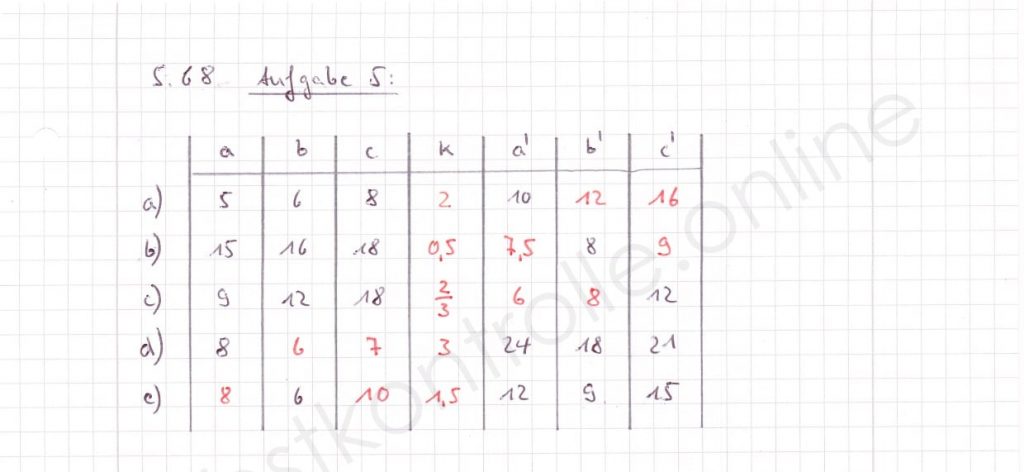 S. 68 Aufgabe 5:
a b c k a' b' c'
a) 5 6 8 2 10 12 16
b) 15 16 18 0,5 7,5 8 9
c) 9 12 18 2/3 6 8 12
d) 8 6 7 3 24 18 21
e) 8 6 10 1,5 12 9 15
stkontrolle.online